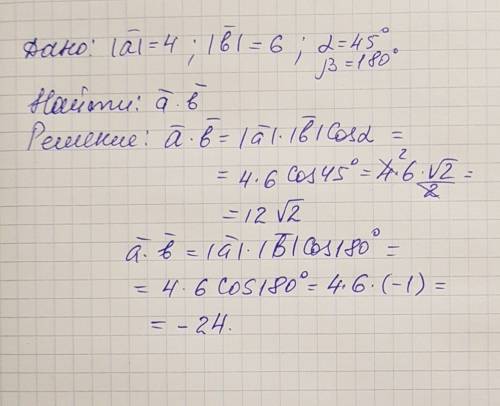 Дано: |a̅|=4 ; |b̅|=6 ; α=45°
β=180°
Найти: a̅·b̅
Решение: a̅·b̅ = |a̅|·|b̅|cosα =
= 4·6 cos45° = 4²·6·√2/2 =
= 12√2
a̅·b̅ = |a̅|·|b̅|cos180° =
= 4·6 cos180° = 4·6·(-1) =
= -24.